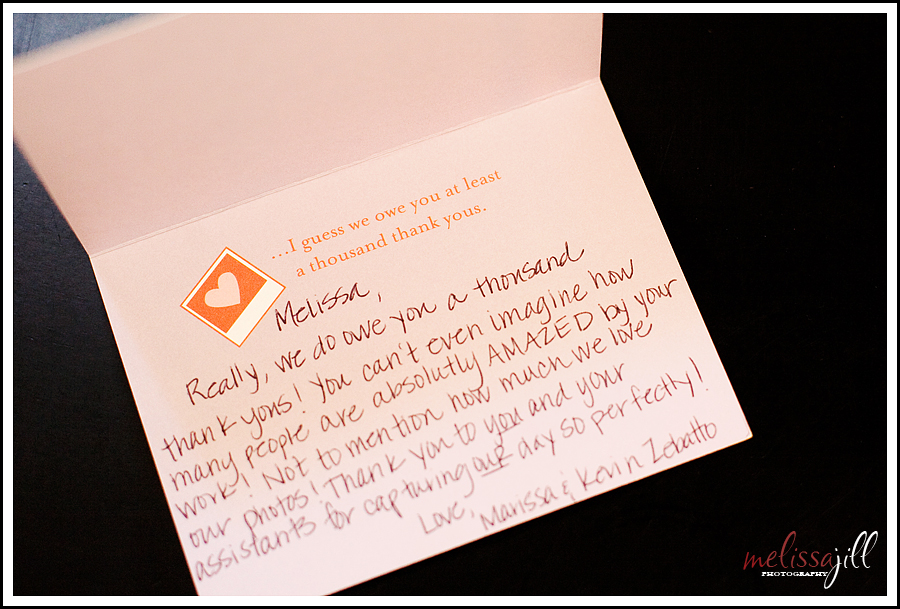 ...I guess we owe you at least
a thousand thank yous.
Melissa,
Really, we do owe you a thousand
thank yous! You can't even imagine how
many people are absolutly AMAZED by your
work! Not to mention how much we love
our photos! Thank you to you and your
assistants for capturing our day so perfectly!
Love, Marissa & Kevin Zebatto
melissajill
PHOTOGRAPHY